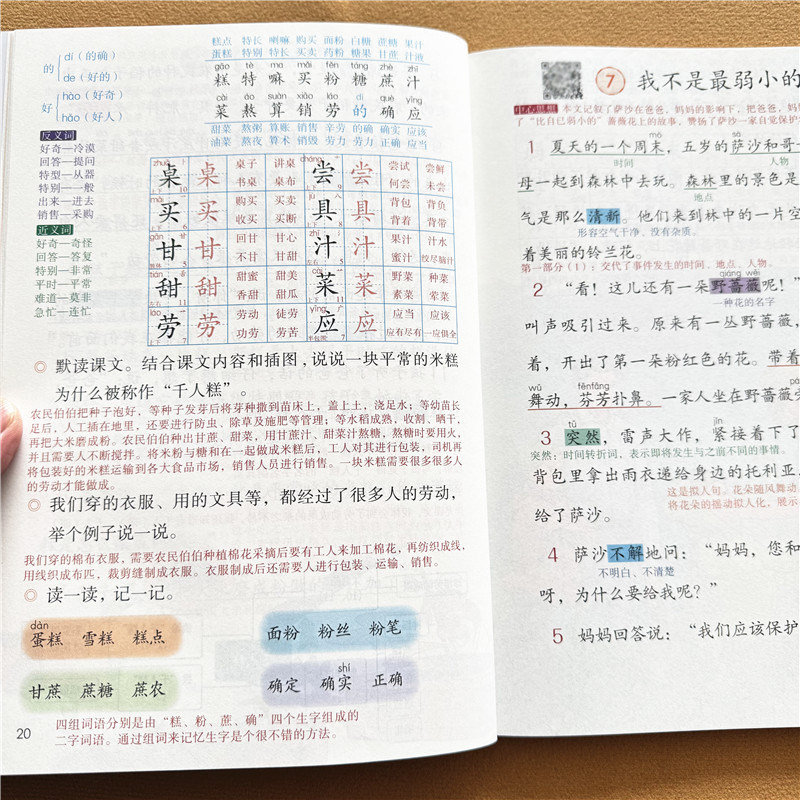 的
dí（的确）
de（好的）
好
hào（好奇）
hǎo（好人）
反义词
好奇—冷漠
回答—提问
特型—从器
特别—一般
出来—进去
销售—采购
近义词
好奇—奇怪
回答—答复
特别—非常
平时—平常
难道—莫非
急忙—连忙
糕点 特长 喇嘛 购买 面粉 白糖 蔗糖 果汁
蛋糕 特别 特长 买卖 药粉 糖果 甘蔗 汁液
gāo tè ma mǎi fěn táng zhè zhī
糕 特 嘛 买 粉 糖 蔗 汁
cài áo suàn xiāo láo dí què yīng
菜 熬 算 销 劳 的 确 应
甜菜 熬粥 算账 销售 辛劳 的确 确实 应该
油菜 熬夜 算术 销毁 劳力 的确 正确 应当
桌 桌 桌子 讲桌 尝 尝 尝试 尝鲜
书桌 桌布 何尝 未尝
买 买 购买 买卖 具 具 背包 背负
收买 买断 背着 背带
甘 甘 回甘 甘心 汁 汁 果汁 汁水
不甘 甘甜 蜜汁 绞尽脑汁
甜 甜 甜蜜 甜美 菜 菜 野菜 种菜
香甜 甜瓜 素菜 荤菜
劳 劳 劳动 徒劳 应 应 应当 应该
功劳 劳苦 应有尽有 一应俱全
默读课文。结合课文内容和插图，说说一块平常的米糕
为什么被称作“千人糕”。
农民伯伯把种子泡好，等种子发芽后将芽种撒到苗床上，盖上土，浇足水；等幼苗长
足后，人工插在地里，还要进行防虫、除草及施肥等管理；等水稻成熟，收割、晒干，
再把大米磨成粉。农民伯伯种出甘蔗、甜菜，用甘蔗汁、甜菜汁熬糖，熬糖时要用火，
并且需要人不断搅拌。将米粉与糖和在一起做成米糕后，工人对其进行包装，司机再
将包装好的米糕运输到各大食品市场，销售人员进行销售。一块米糕需要很多很多人
的劳动才能做成。
我们穿的衣服、用的文具等，都经过了很多人的劳动，
举个例子说一说。
我们穿的棉布衣服，需要农民伯伯种植棉花采摘后要有工人来加工棉花，再纺织成线，
用线织成布匹，裁剪缝制成衣服。衣服制成后还需要人进行包装、运输、销售。
读一读，记一记。
dàn
蛋糕 雪糕 糕点
面粉 粉丝 粉笔
甘蔗 蔗糖 蔗农
shí
确定 确实 正确
四组词语分别是由“糕、粉、蔗、确”四个生字组成的
二字词语。通过组词来记忆生字是个很不错的方法。
20
7 我不是最弱小的
中心思想 本文记叙了萨沙在爸爸、妈妈的影响下，把爸爸、妈
了“比自己弱小的”蔷薇花上的故事，赞扬了萨沙一家自觉保护
mò sà
1 夏天的一个周末，五岁的萨沙和哥
时间 人物
母一起到森林中去玩。森林里的景色是
地点
气是那么清新。他们来到林中的一片空
形容空气干净、没有杂质。
着美丽的铃兰花。
第一部分（1）：交代了事件发生的时间、地点、人物。
qiáng wēi
2 “看！这儿还有一朵野蔷薇呢！”
一种花的名字
叫声吸引过来。原来有一丛野蔷薇，
着，开出了第一朵粉红色的花。带着
wǔ fēn fāng
舞动，芬芳扑鼻。一家人坐在野蔷薇旁
tū jǐn
3 突然，雷声大作，紧接着下了
突然：时间转折词，表示即将发生与之前不同的事情。
背包里拿出雨衣递给身边的托利亚，
这是拟人句。花朵随风舞动，
将花朵的摇动拟人化，展示
给了萨沙。
4 萨沙不解地问：“妈妈，您和
不明白、不清楚
呀，为什么要给我呢？”
5 妈妈回答说：“我们应该保护